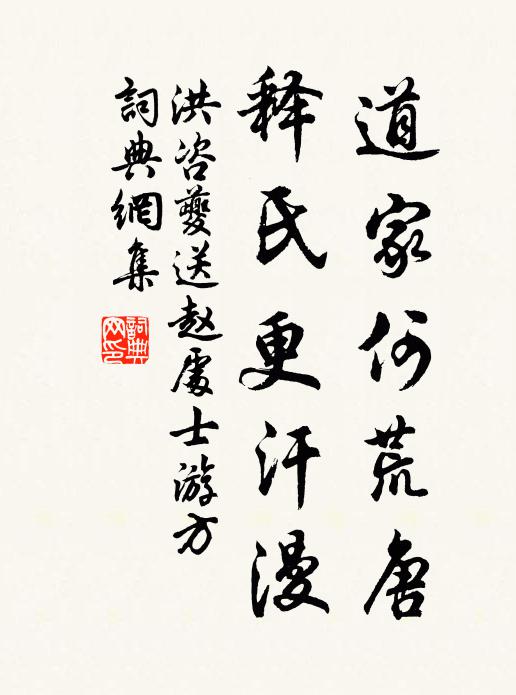 道家何荒唐
释氏更汗漫
洪咨夔送赵處士游方
詞典網集
詞典网印